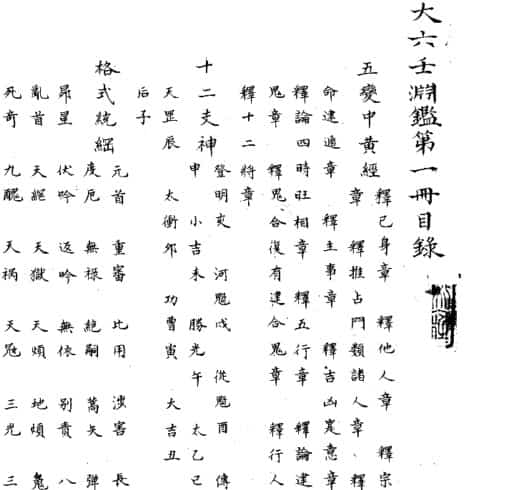 大六壬淵鑑第一冊目錄
五變中黃經
釋己身章 釋他人章 釋宗
章 釋推占門類諸人章 釋
命建遁章 釋主事章 釋吉凶定意章
釋論四時旺相章 釋五行章 釋論建
鬼章 釋鬼合復有建合鬼章 釋行人
釋十二將章
十二支神
登明亥 河魁戌 從魁酉 傳
申 小吉未 勝光午 太乙巳
天罡辰 太衝卯 功曹寅 大吉丑
后子
格式統綱
元首 重審 比用 涉害 長
度厄 無祿 絕嗣 蒿矢 彈
昴星 伏吟 返吟 無依 別責 八
亂首 天獄 天煩 地煩
死奇 九醜 天禍 天寇 三光 三